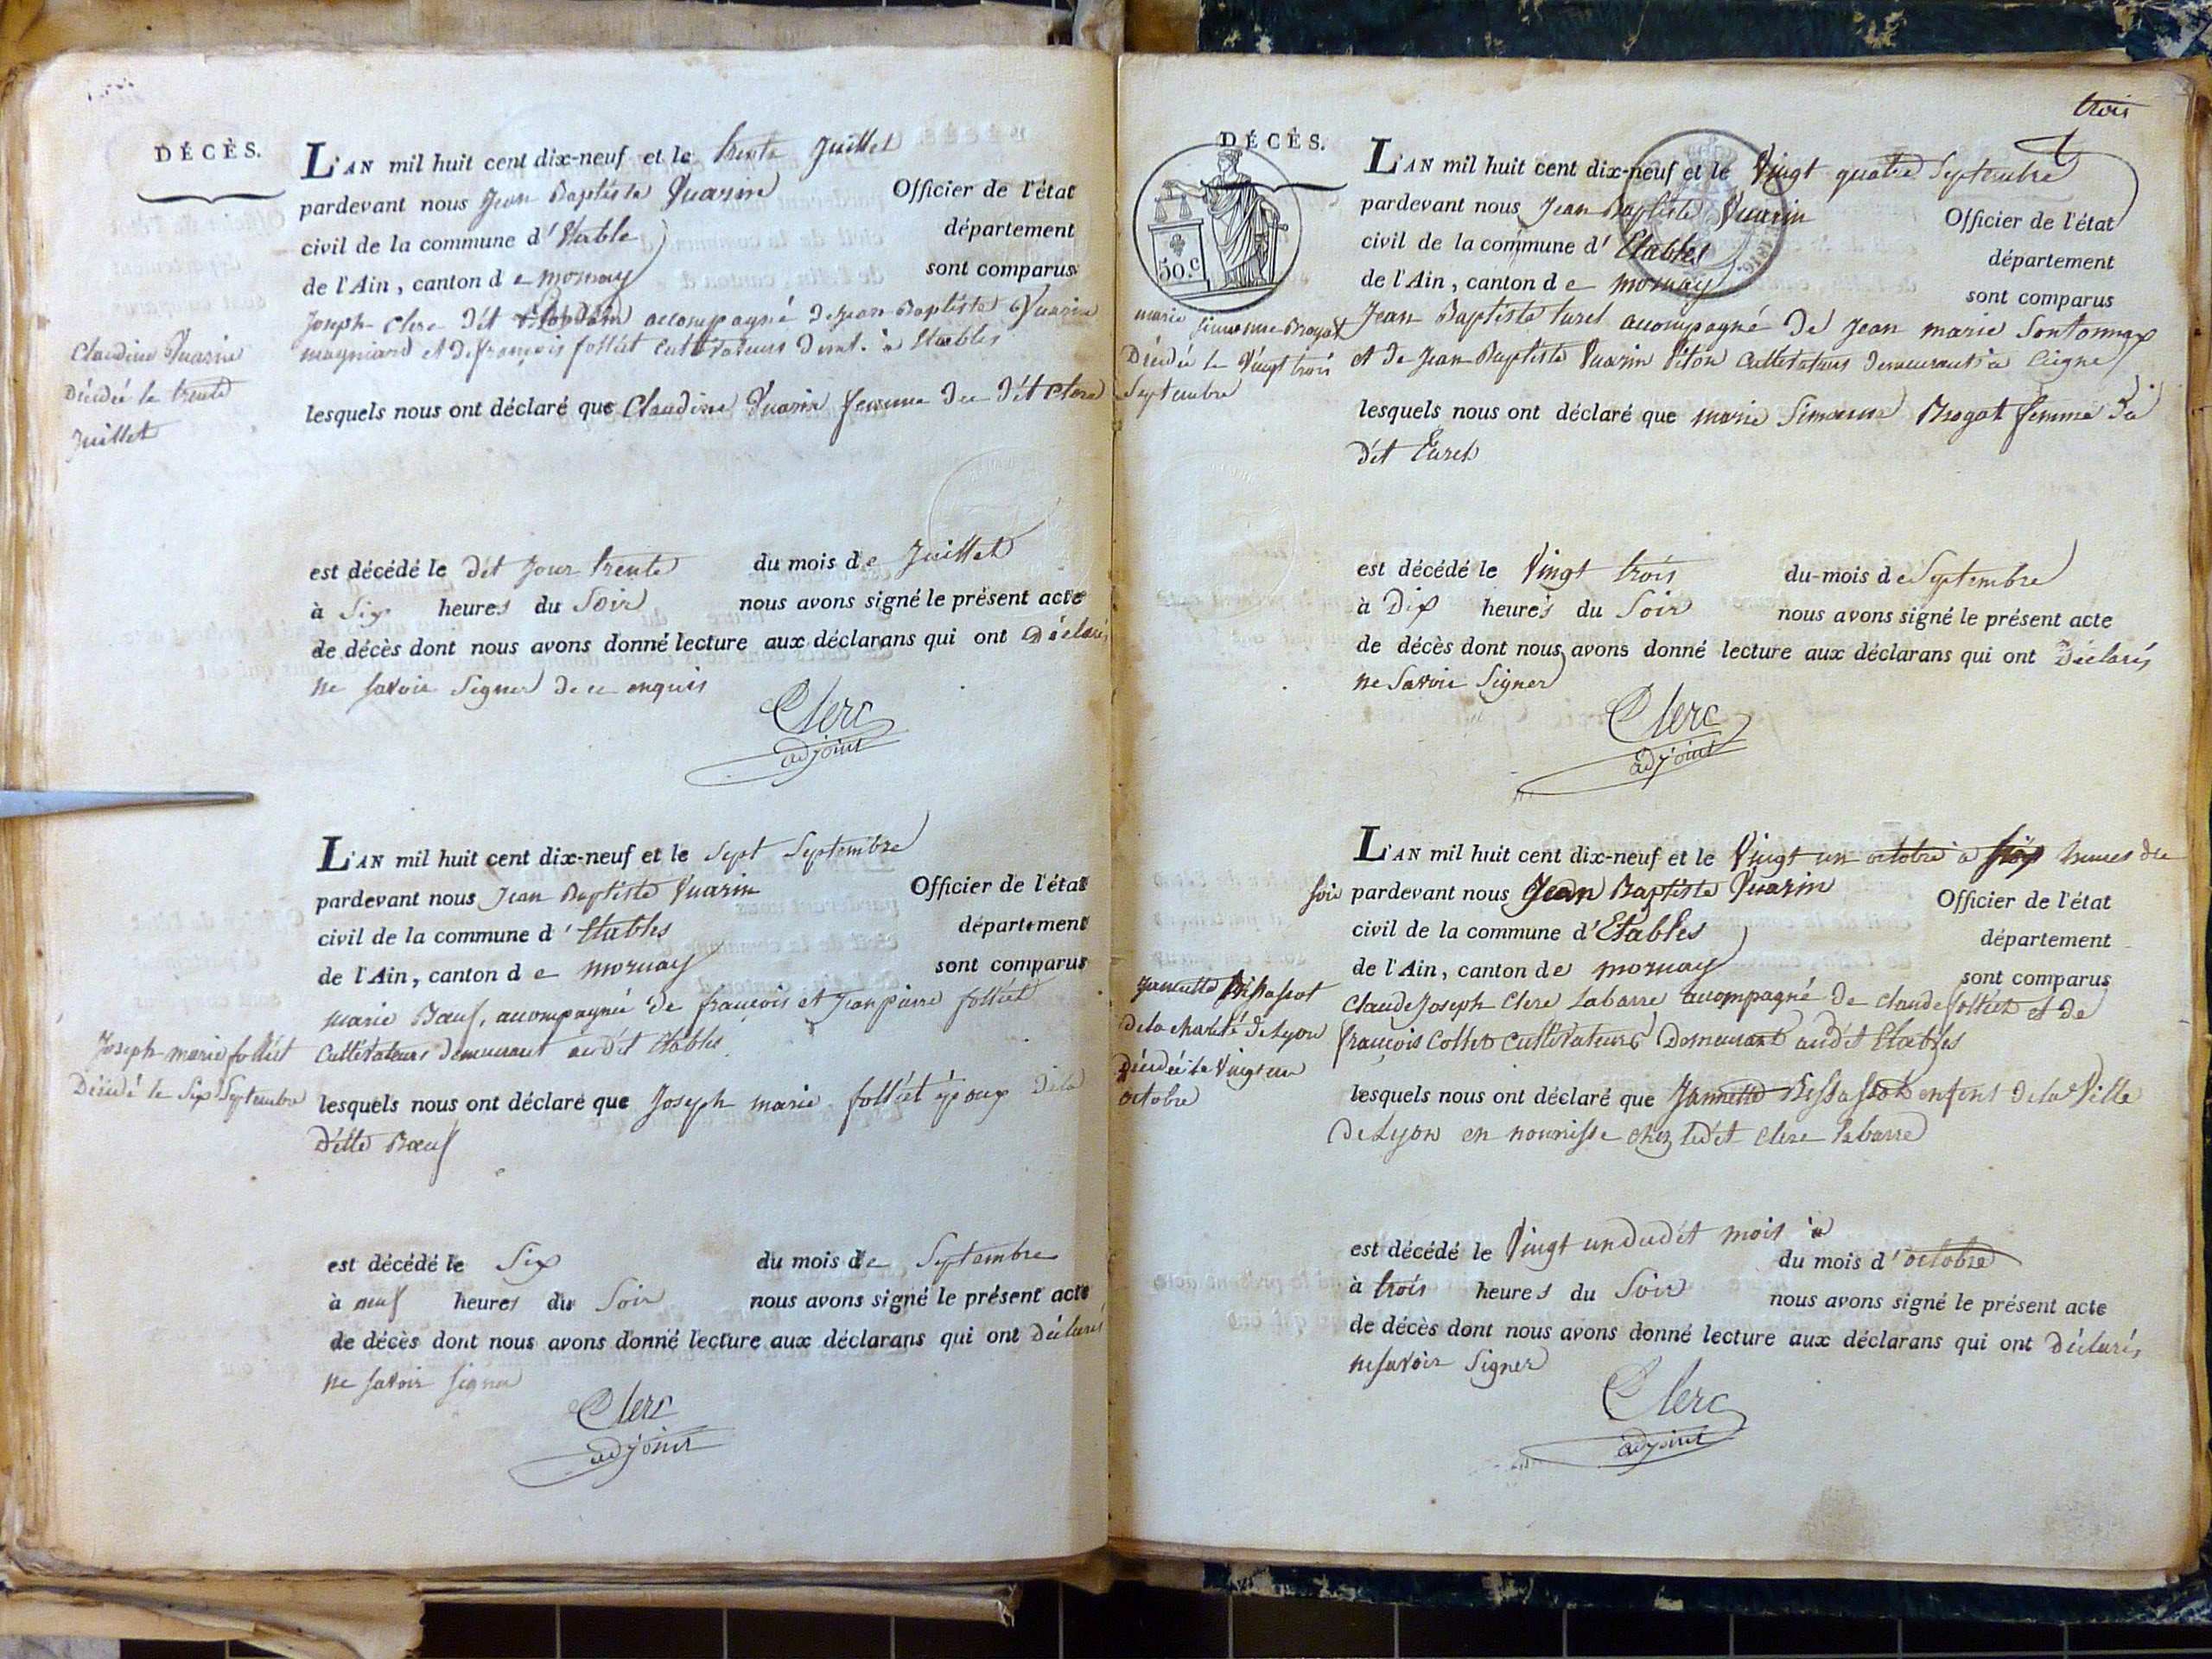 DÉCÈS.
L'AN mil huit cent dix-neuf et le trente Juillet
pardevant nous Jean Baptiste Vuarin Officier de l'état
civil de la commune d'Etable département
de l'Ain, canton de mornay sont comparus
Joseph Clerc dit accompagné de jean Baptiste Vuarin
magniard et de françois folliet Cultivateurs demt. à Etables
Claudine Vuarin
Décédée le trente
Juillet
lesquels nous ont déclaré que Claudine Vuarin femme du dit Clerc
est décédé le dit Jour trente du mois de Juillet
à Six heures du Soir nous avons signé le présent acte
de décès dont nous avons donné lecture aux déclarans qui ont Déclarés
ne Savoir Signer de ce enquis
Clerc
adjoint
L'AN mil huit cent dix-neuf et le Sept Septembre
pardevant nous Jean Baptiste Vuarin Officier de l'état
civil de la commune d'Etables département
de l'Ain, canton de mornay sont comparus
marie Bœuf, accompagnée de francois et Jean pierre folliet
Cultivateurs demeurant audit Etables
Joseph marie folliet
Décédé le Six Septembre
lesquels nous ont déclaré que Joseph marie folliet époux de la
ditte Bœuf
est décédé le Six du mois de Septembre
à neuf heures du Soir nous avons signé le présent acte
de décès dont nous avons donné lecture aux déclarans qui ont Déclarés
ne Savoir Signer
Clerc
adjoint
trois
DÉCÈS.
50.c
1816
L'AN mil huit cent dix-neuf et le Vingt quatre Septembre
pardevant nous Jean Baptiste Vuarin Officier de l'état
civil de la commune d'Etables département
de l'Ain, canton de mornay sont comparus
Jean Baptiste turel accompagné de Jean marie Sontonnax
et de Jean Baptiste Vuarin Piton Cultivateurs demeurant à Ceigne
marie Simonne Brogat
Décédée le Vingt trois
Septembre
lesquels nous ont déclaré que marie Simonne Brogat femme du
dit turel
est décédé le Vingt trois du mois de Septembre
à Dix heures du Soir nous avons signé le présent acte
de décès dont nous avons donné lecture aux déclarans qui ont Déclarés
ne Savoir Signer
Clerc
adjoint
L'AN mil huit cent dix-neuf et le Vingt un octobre a Six heures du
Soir pardevant nous Jean Baptiste Vuarin Officier de l'état
civil de la commune d'Etables département
de l'Ain, canton de mornay sont comparus
Claude Joseph Clerc Labarre accompagné de claude folliet et de
françois Collet Cultivateurs Demeurant audit Etables
Jannette
de la charité de Lyon
Décédée le Vingt un
octobre
lesquels nous ont déclaré que Jannette enfent de la Ville
de Lyon en nourrisse chez ledit clerc labarre
est décédé le Vingt un dudit mois du mois d'octobre
à trois heures du Soir nous avons signé le présent acte
de décès dont nous avons donné lecture aux déclarans qui ont Déclarés
ne Savoir Signer
Clerc
adjoint